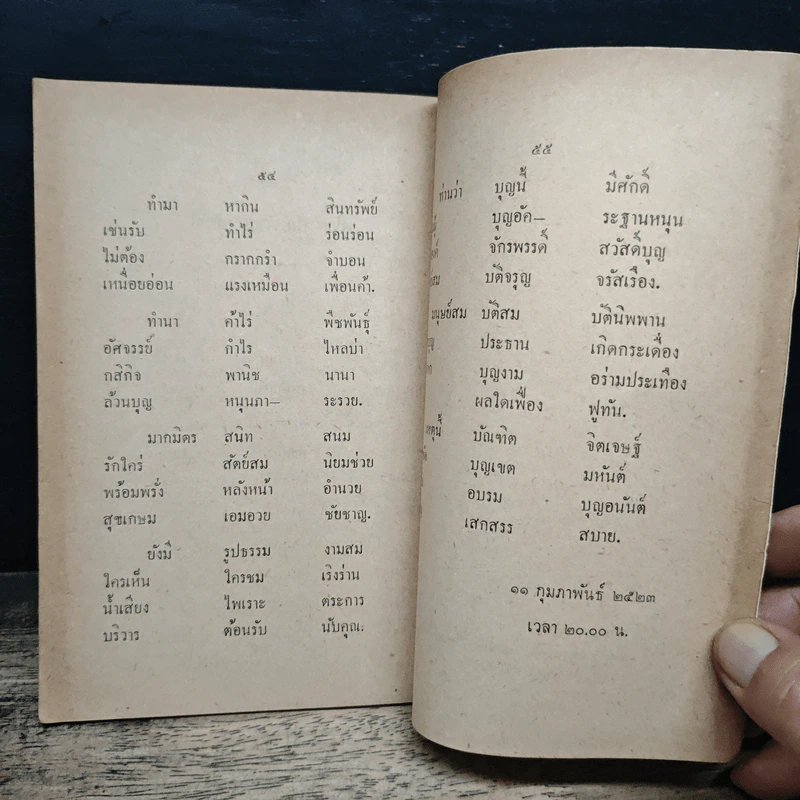 ๕๔
ทำมา หากิน สินทรัพย์
เช่นรับ ทำไร่ ร่อนร่อน
ไม่ต้อง กรากกรำ จำบอน
เหนื่อยอ่อน แรงเหมือน เพื่อนค้า.
ทำนา ค้าไร่ พืชพันธุ์
อัศจรรย์ กำไร ไหลบ่า
กสิกิจ พานิช นานา
ล้วนบุญ หนุนภา— ระรวย.
มากมิตร สนิท สนม
รักใคร่ สัตย์สม นิยมช่วย
พร้อมพรั่ง หลังหน้า อำนวย
สุขเกษม เอมอวย ชัยชาญ.
ยังมี รูปธรรม งามสม
ใครเห็น ใครชม เริงร่าน
น้ำเสียง ไพเราะ ตระการ
บริวาร ต้อนรับ นับคุณ.
๕๕
ท่านว่า บุญนี้ มีศักดิ์
บุญอัค— ระฐานหนุน
จักรพรรดิ์ สวัสดิ์บุญ
บัติจรุญ จรัสเรือง.
มนุษย์สม บัติสม บัตินิพพาน
ประธาน เกิดกระเดื่อง
บุญงาม อร่ามประเทือง
ผลใดเฟื่อง ฟูทัน.
บัณฑิต จิตเจษฐ์
บุญเขต มหันต์
อบรม บุญอนันต์
เสกสรร สบาย.
๑๑ กุมภาพันธ์ ๒๕๒๓
เวลา ๒๐.๐๐ น.